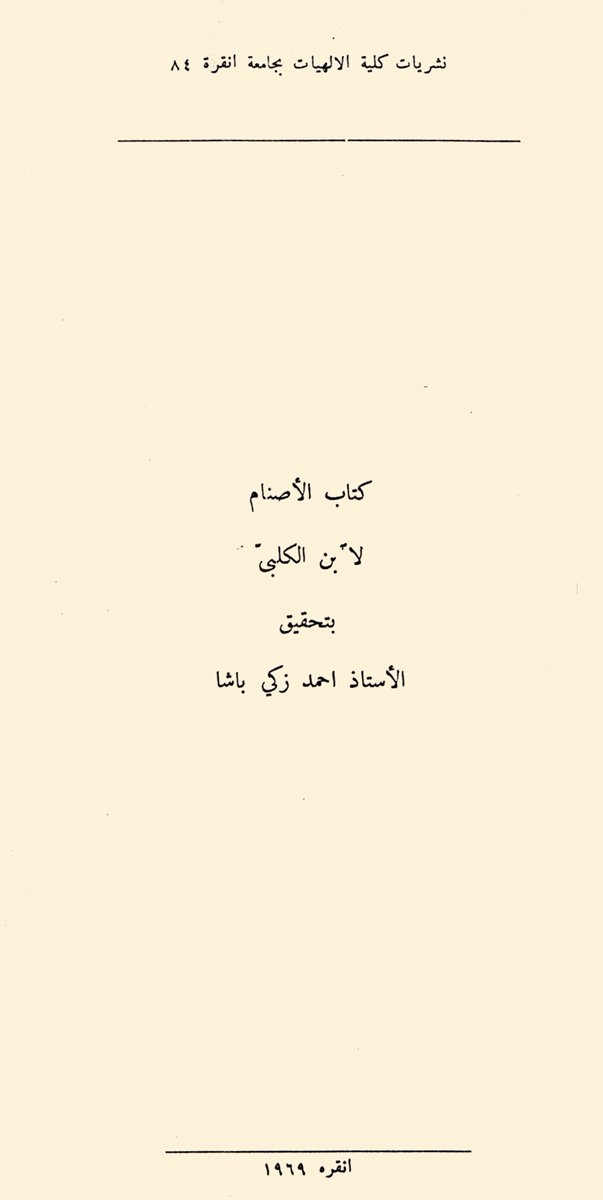 نشريات كلية الالهيات بجامعة انقرة ٨٤
كتاب الأصنام
لاٴبن الكلبيّ
بتحقيق
الأستاذ احمد زكي باشا
انقره ١٩٦٩